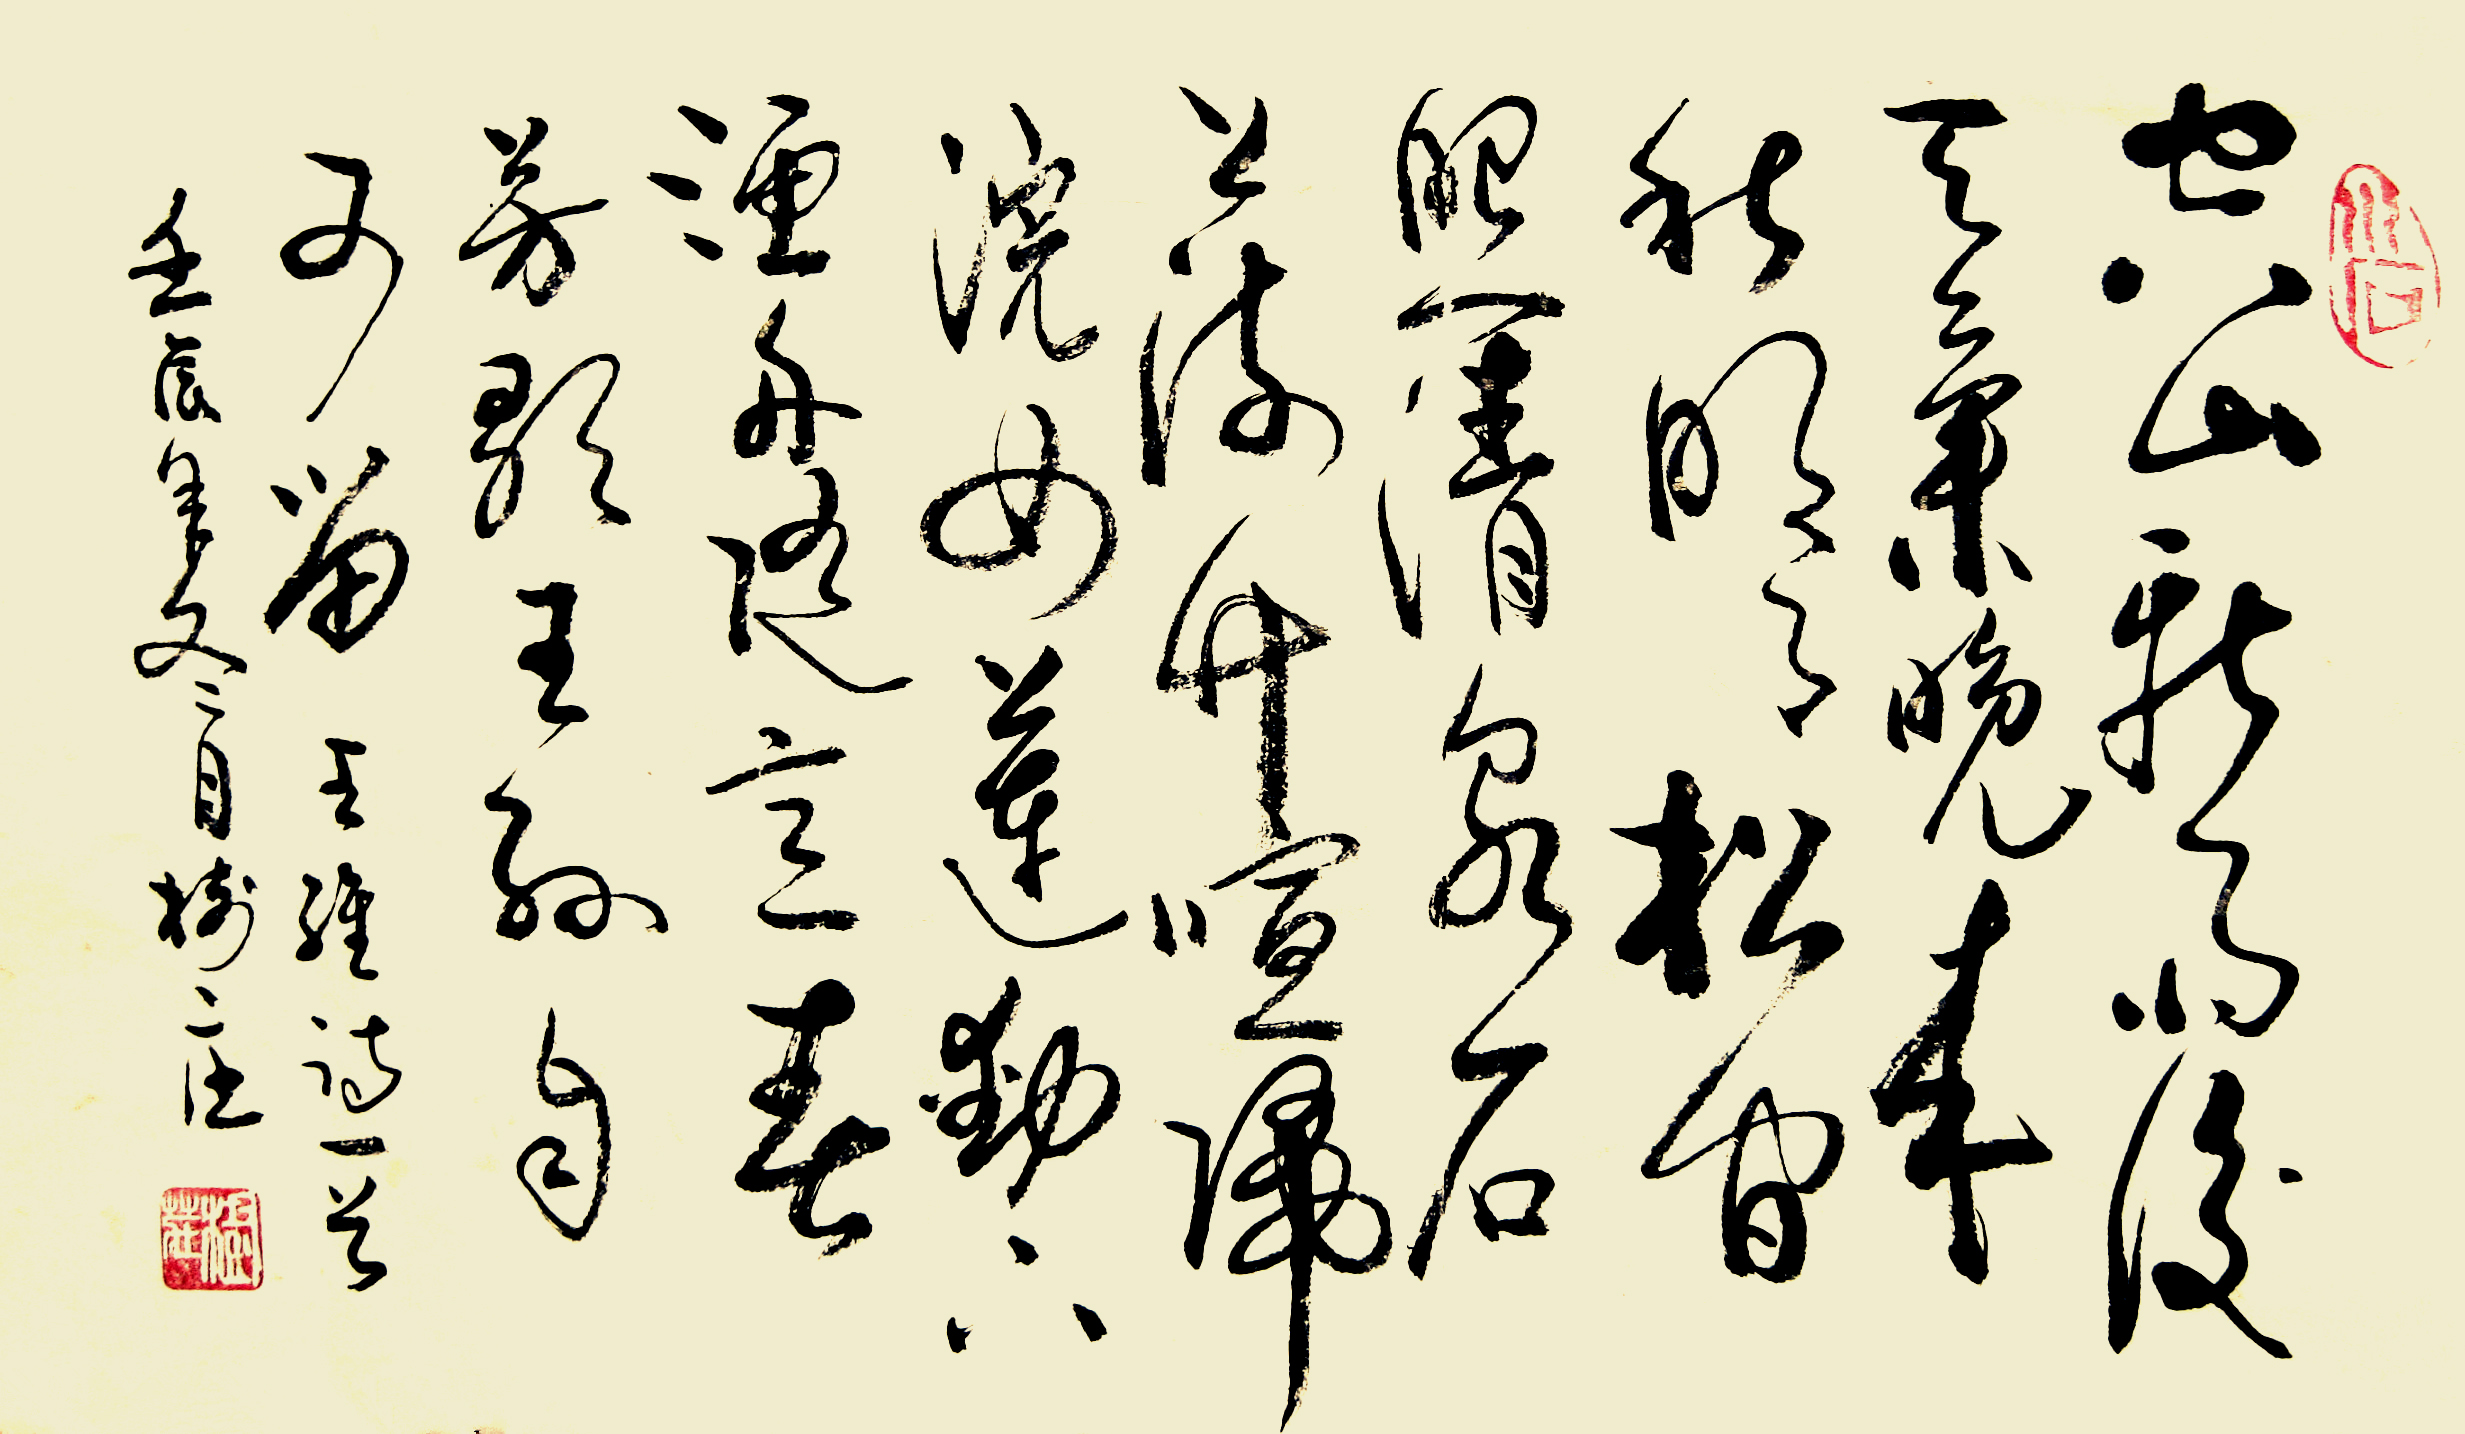 空山新雨後
天氣晚来
秋明月松間
照清泉石
上流竹喧歸
浣女蓮動下
漁舟随意春
芳歇王孫自
可留 王維詩一首
壬辰年冬月樹庄
樹莊